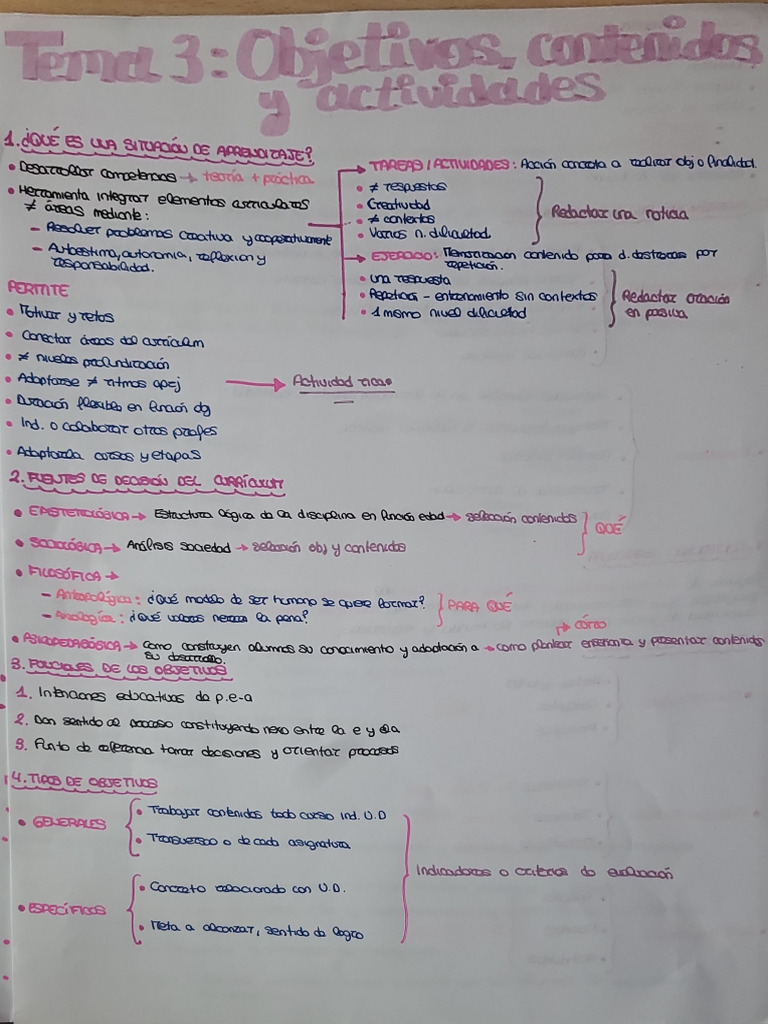 Tema 3: Objetivos, contenidos
y actividades
1. ¿QUÉ ES UNA SITUACIÓN DE APRENDIZAJE?
• Desarrollar competencias → teoría + práctica
• Herramienta integrar elementos curriculares
≠ áreas mediante:
- Resolver problemas creativa y cooperativamente
- Autoestima, autonomía, reflexion y
responsabilidad.
→ TAREAS / ACTIVIDADES: Acción concreta a realizar obj o finalidad.
• ≠ respuestas
• Creatividad
• ≠ contextos
• Varios n. dificultad
Redactar una noticia
→ EJERCICIO: Memorizacion contenido para d. destrezas por
repetición.
• Una respuesta
• Repeticion - entrenamiento sin contextos
• 1 mismo nivel dificultad
Redactar oración
en pasiva
PERMITE
• Motivar y retos
• Conectar áreas del curriculum
• ≠ niveles profundización
• Adaptarse ≠ ritmos apzj
• Duración flexible en función dg
• Ind. o colaborar otros profes
• Adaptarla cursos y etapas
→ Actividad rica
2. FUENTES DE DECISIÓN DEL CURRÍCULUM
• EPISTEMOLÓGICA → Estructura lógica de la disciplina en función edad → selección contenidos
• SOCIOLÓGICA → Análisis sociedad → selección obj y contenidos
QUÉ
• FILOSÓFICA →
- Antropológica: ¿Qué modelo de ser humano se quiere formar?
- Axiológica: ¿Qué valores merecen la pena?
PARA QUÉ
→ CÓMO
• PSICOPEDAGÓGICA → Como construyen alumnos su conocimiento y adaptación a → como plantear enseñanza y presentar contenidos
su desarrollo.
3. FUNCIONES DE LOS OBJETIVOS
1. Intenciones educativas de p.e-a
2. Dan sentido al proceso constituyendo nexo entre la e y el a
3. Punto de referencia tomar decisiones y orientar procesos
4. TIPOS DE OBJETIVOS
• GENERALES
• Trabajar contenidos todo curso ind. U.D
• Transversal o de cada asignatura
• ESPECÍFICOS
• Concreto relacionado con U.D.
• Meta a alcanzar, sentido de logro
Indicadores o criterios de evaluación